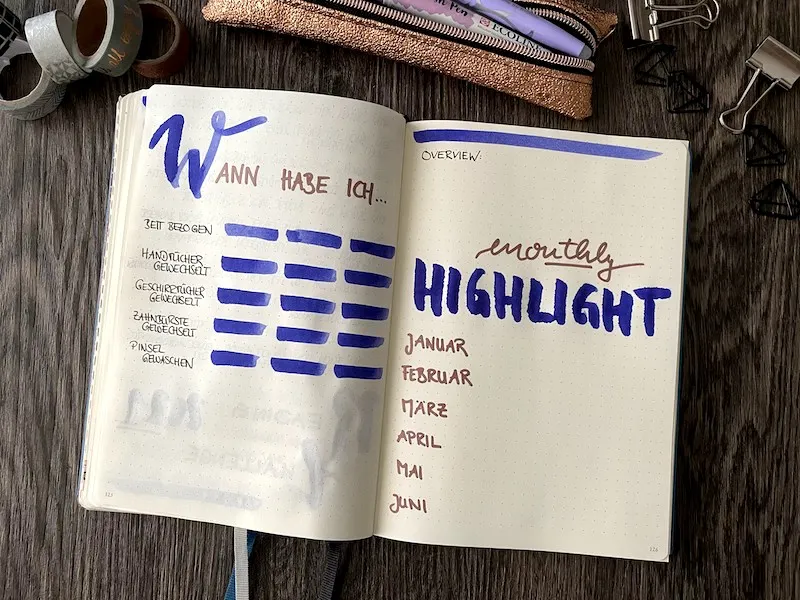 Wann habe ich...
Bett bezogen
Handtücher
gewechselt
Geschirrtücher
gewechselt
Zahnbürste
gewechselt
Pinsel
gewaschen
Overview:
monthly
HIGHLIGHT
Januar
Februar
März
April
Mai
Juni
ECOLINE